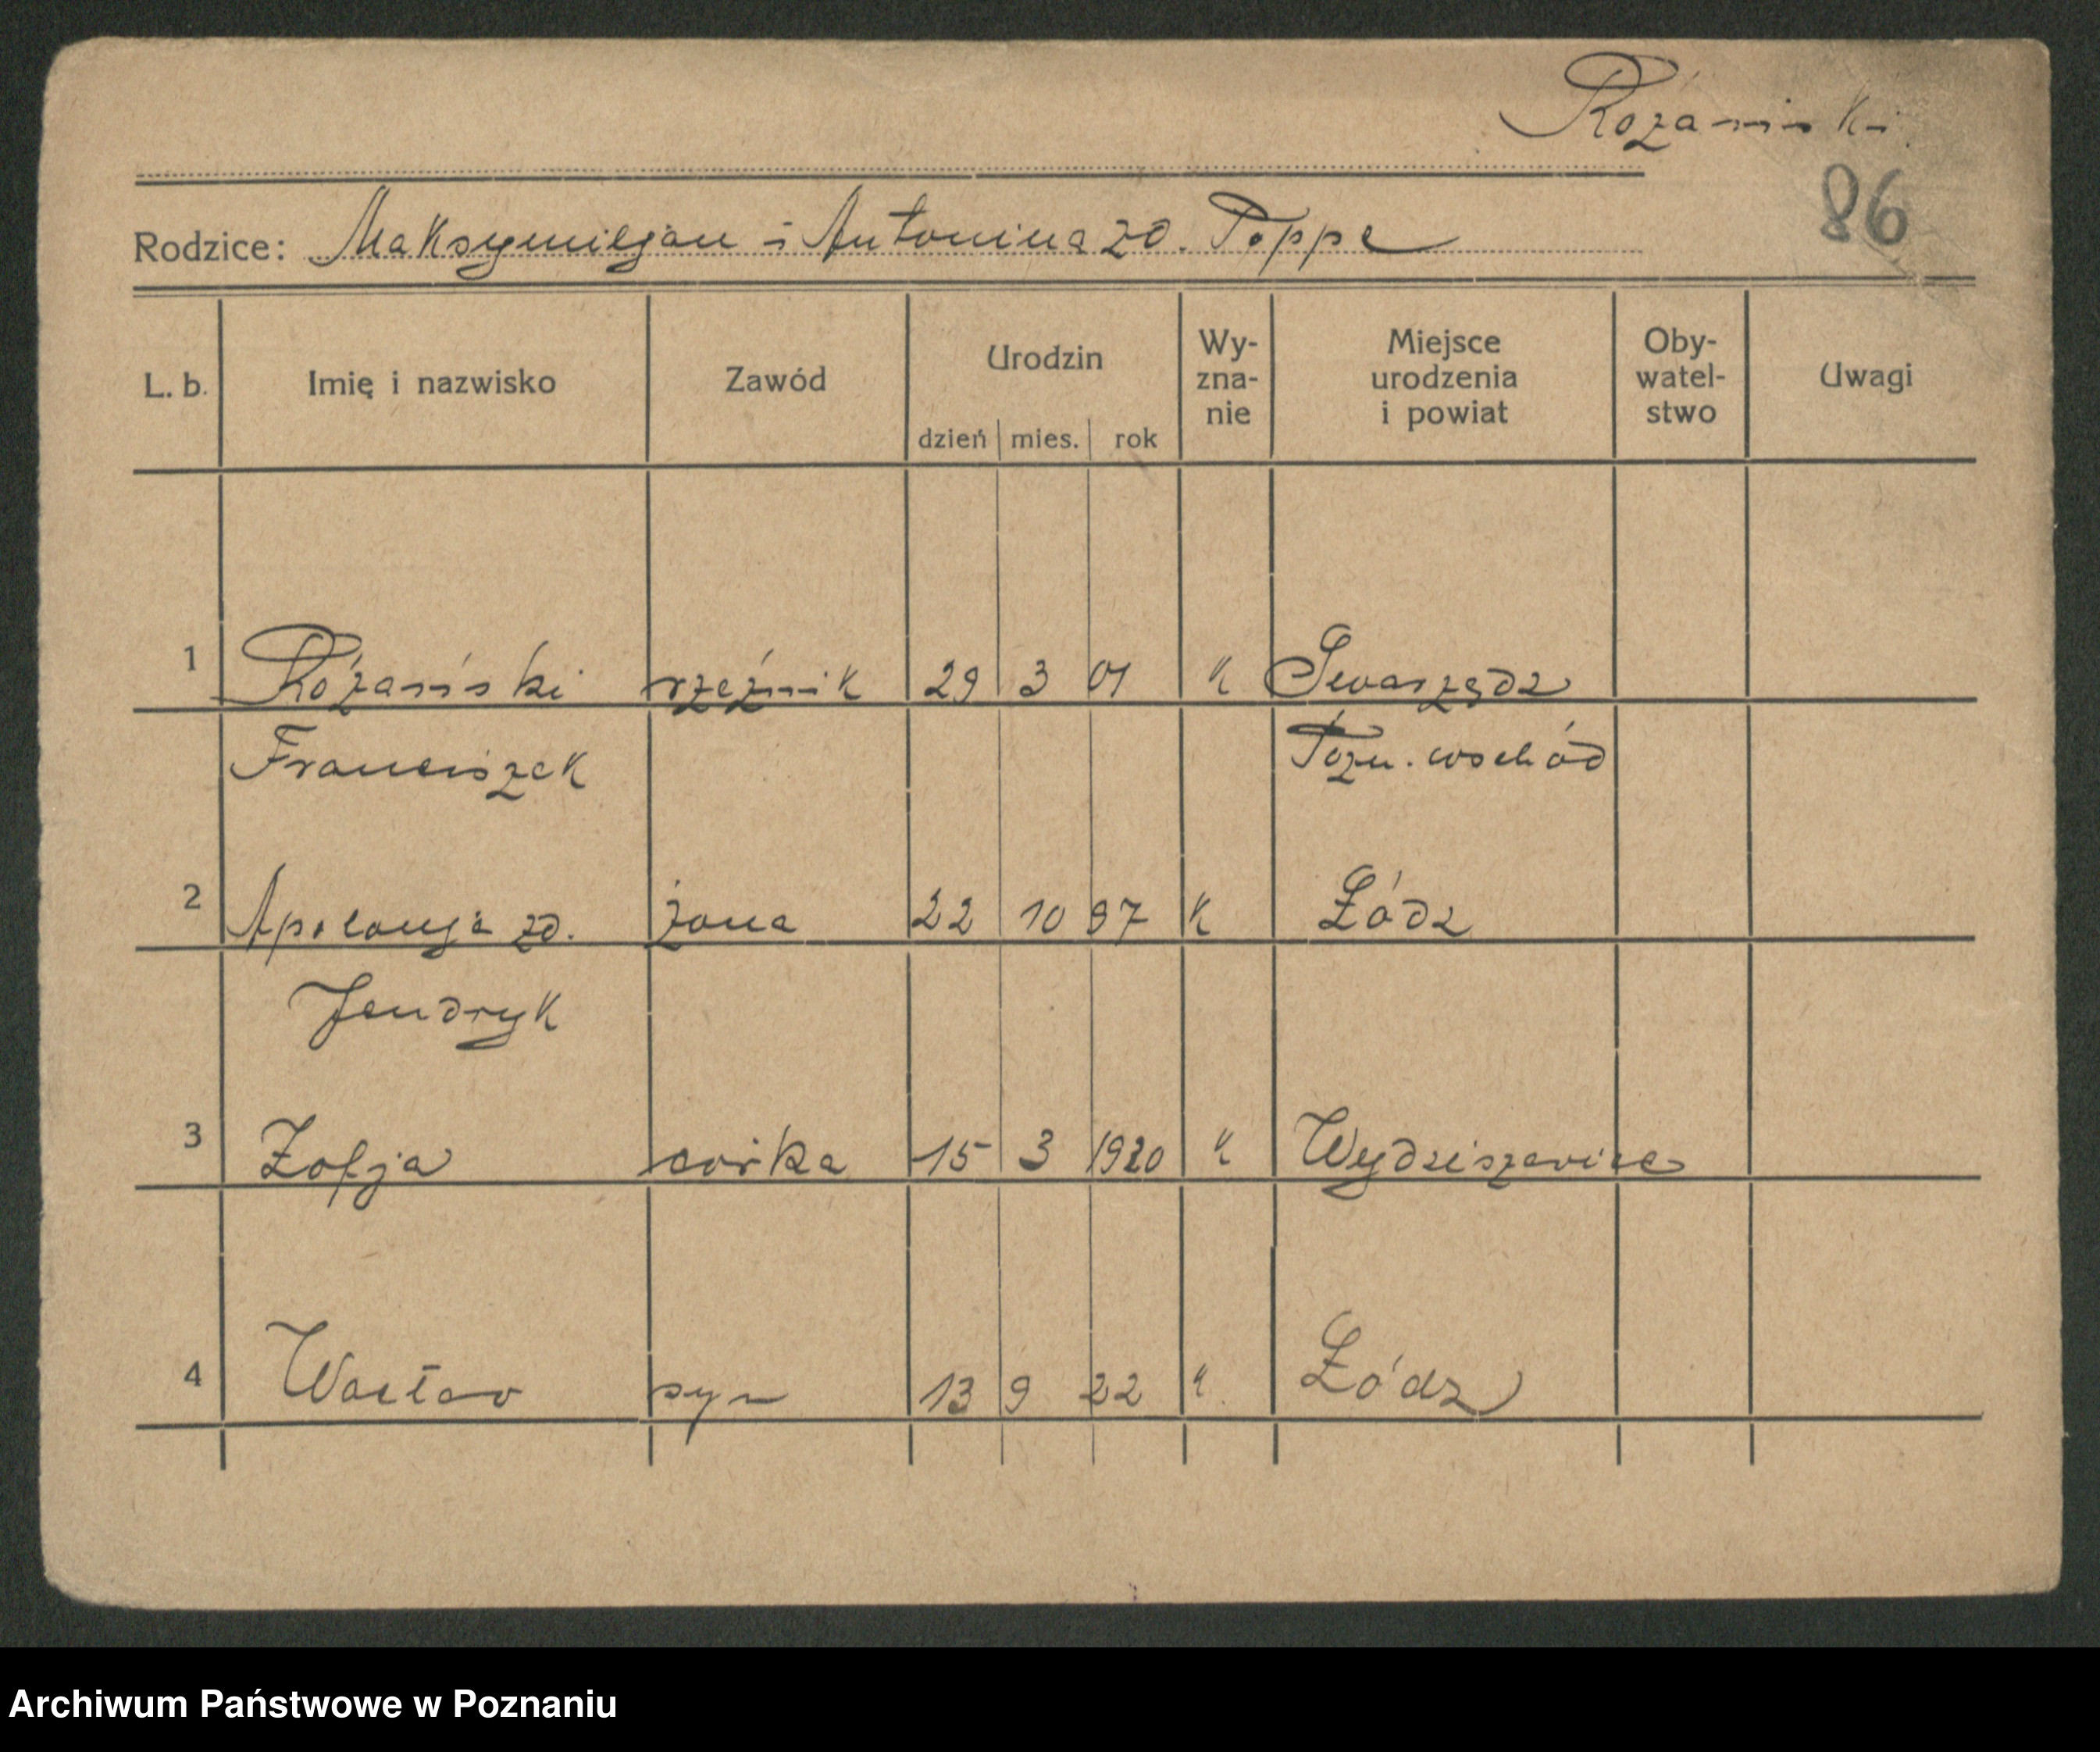 Różański
86
Rodzice: Maksymiljan i Antonina zd. Poppe
L. b. Imię i nazwisko Zawód Urodzin dzień mies. rok Wy-zna-nie Miejsce urodzenia i powiat Oby-watel-stwo Uwagi
1 Różański rzeźnik 29 3 01 k Swarzędz
Franciszek Pozn. wschód
2 Apolonja zd. żona 22 10 97 k Łódz
Jendryk
3 Zofja córka 15 3 1920 k
4 Wacław syn 13 9 22 k Łódz
Archiwum Państwowe w Poznaniu